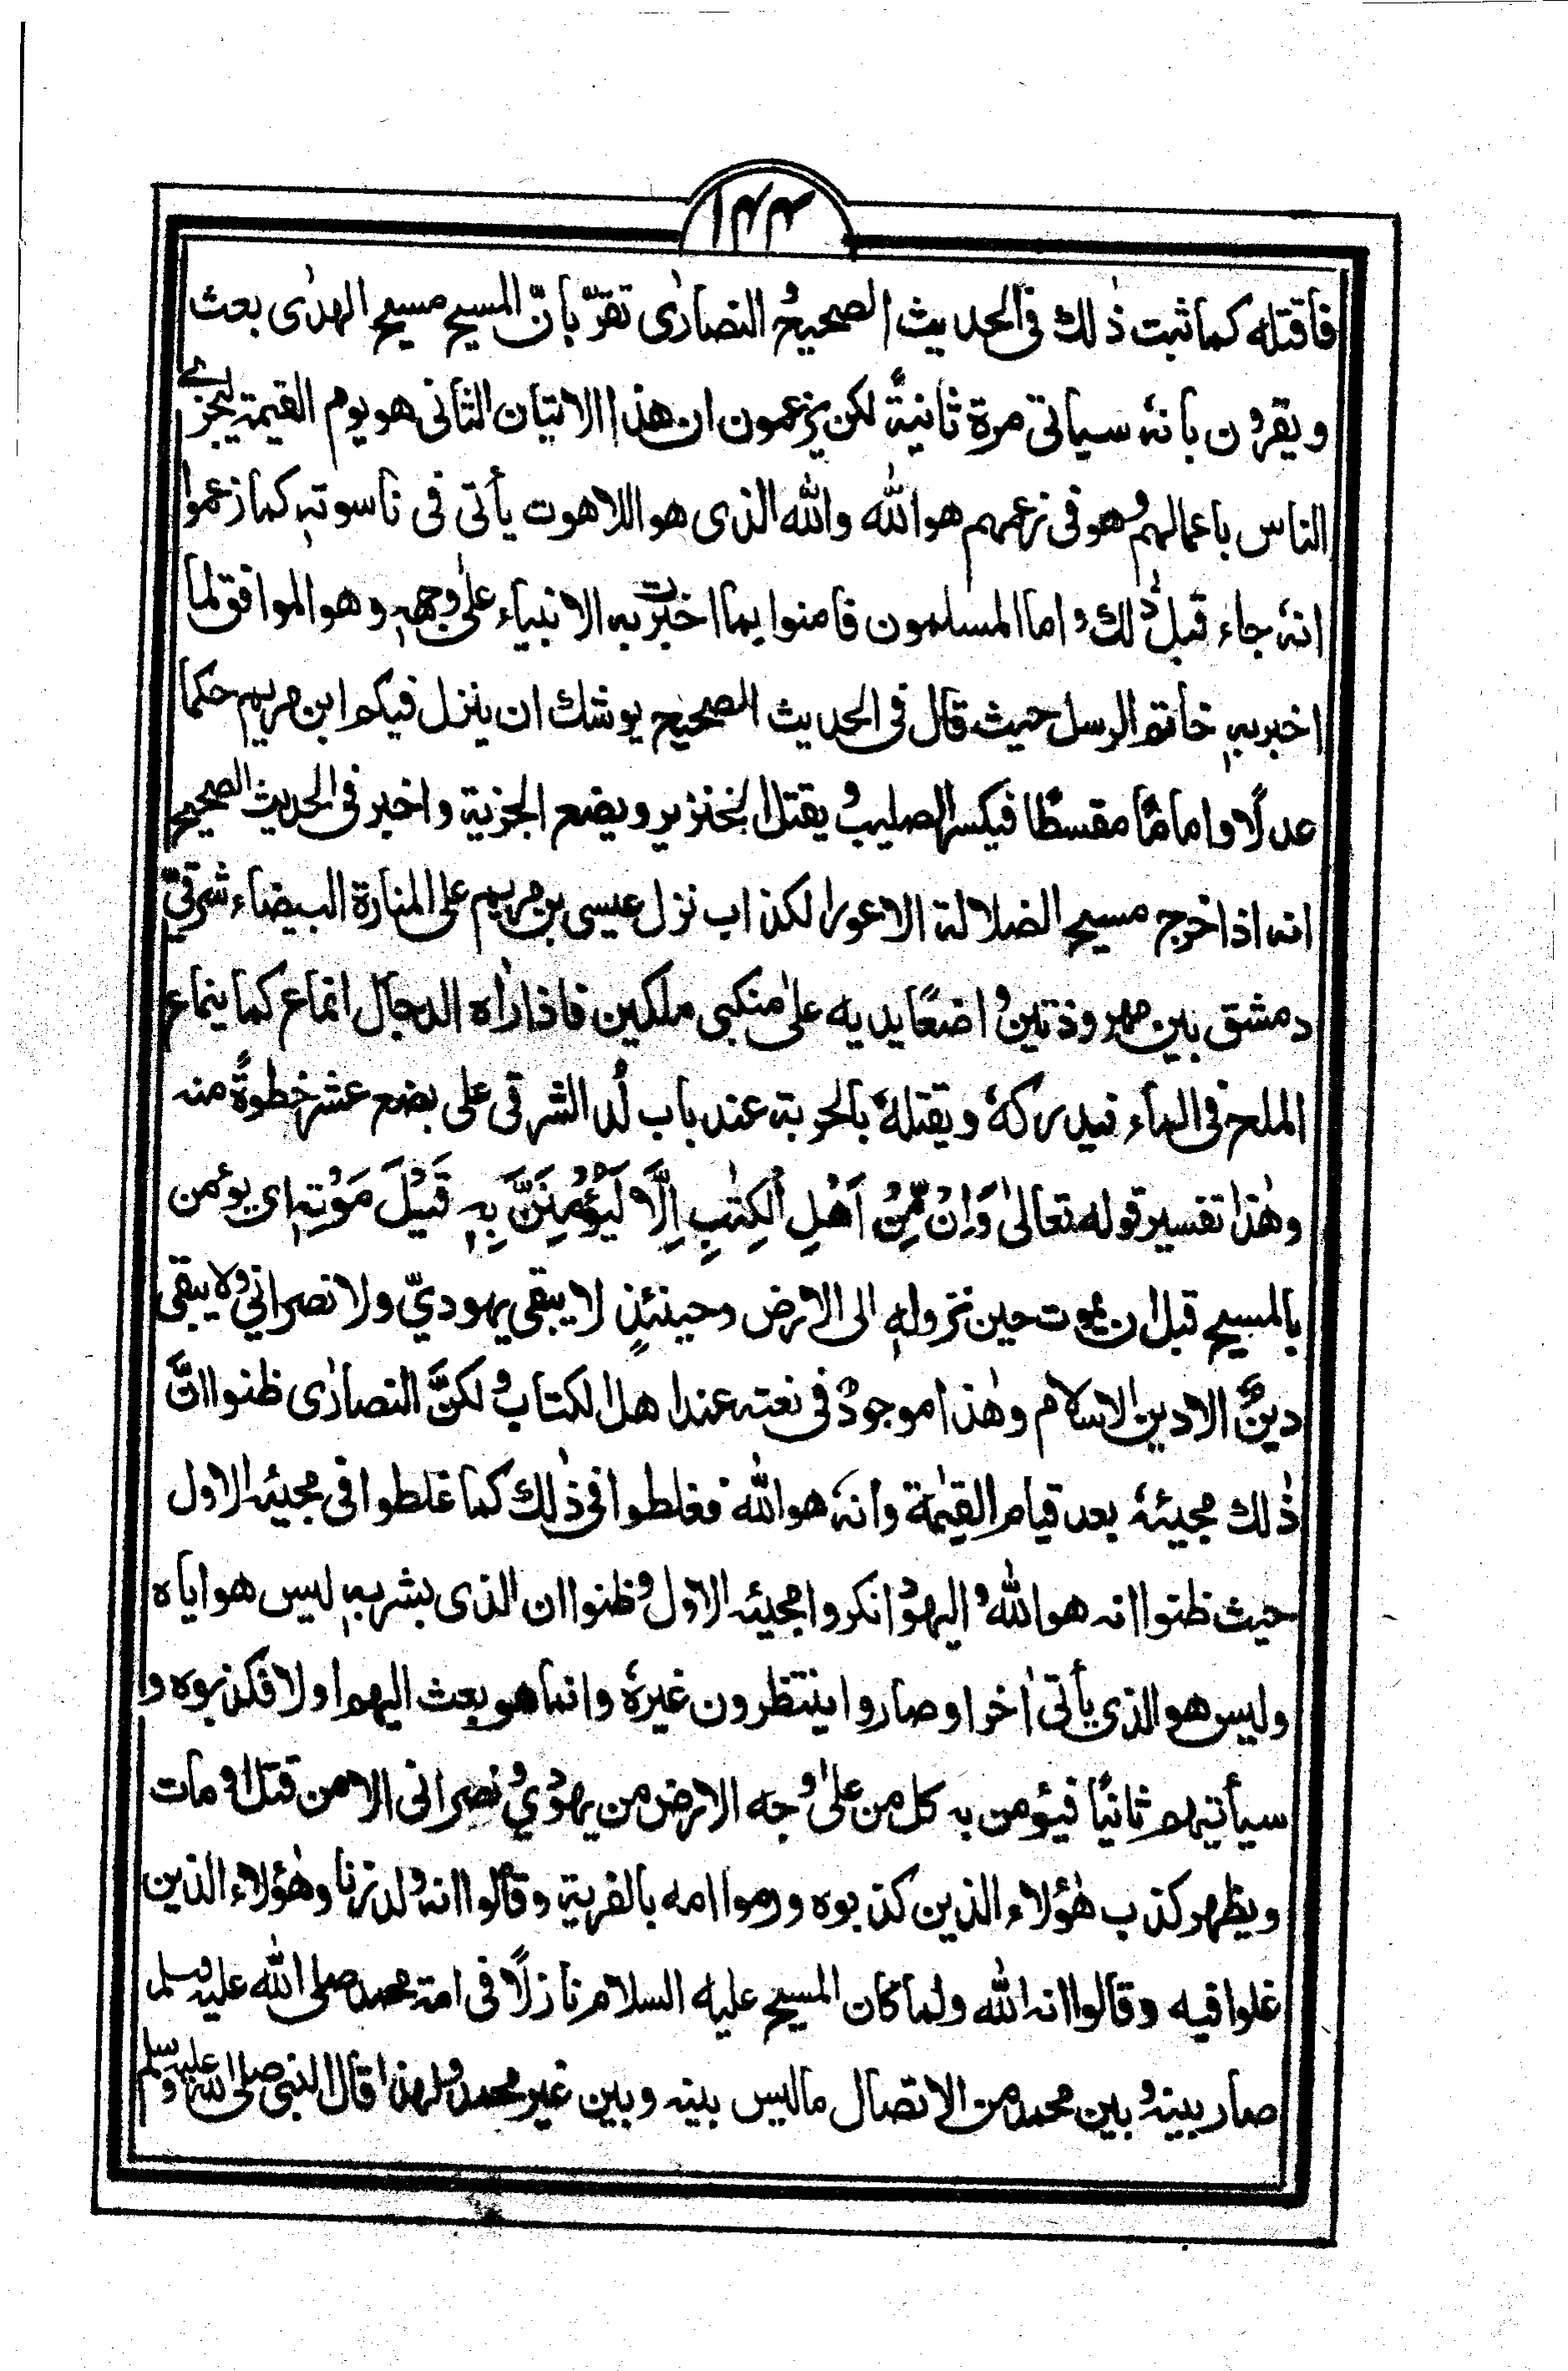 ١٤٤
فاقتله كما ثبت ذٰلك فى الحديث الصحيح و النصارٰى تقرّ بانّ المسيح مسيح الهدٰى بعث
ويقرون بانهٗ سياتى مرة ثانيةً لكن يزعمون ان هذا الاتيان الثانى هو يوم القيمة ليجزے
الناس باعمالهم وهو فى زعمهم هو الله والله الذى هو اللاهوت يأتى فى ناسوتهٖ كما زعموا
انهٗ جاء قبل ذٰلك و اما المسلمون فامنوا بما اخبرت به الانبياء علٰى وجههٖ وهو الموافق لما
اخبر بهٖ خاتم الرسل حيث قال فى الحديث الصحيح يوشك ان ينزل فيكم ابن مريم حكما
عدلًا و اماما مقسطًا فيكسر الصليب و يقتل الخنزير ويضع الجزية واخبر فى الحديث الصحيح
انه اذا خرج مسيح الضلالة الاعور الكذاب نزل عيسى بن مريم على المنارة البيضاء شرقىّ
دمشق بين مهروذتين واضعًا يديه علٰى منكبى ملكين فاذا رأه الدجال انماع كما ينماع
الملح فى الماء فيدركهٗ ويقتلهٗ بالحربة عند باب لُد الشرقى على بضع عشر خطوةً منه
وهٰذا تفسير قوله تعالٰى وَاِنْ مِّنْ اَهْلِ الْكِتٰبِ اِلَّا لَيُؤْمِنَنَّ بِهٖ قَبْلَ مَوْتِهٖ اى يؤمن
بالمسيح قبل ان يموت حين نزولهٖ الى الارض وحينئذٍ لا يبقى يهوديّ ولا نصرانيّ ولا يبقى
دينٌ الا دين الاسلام وهٰذا موجودٌ فى نعته عند اهل الكتاب و لكنَّ النصارٰى ظنوا انَّ
ذٰلك مجيئهٗ بعد قيام القيٰمة وانهٗ هو الله فغلطوا فى ذٰلك كما غلطوا فى مجيئه الاول
حيث ظنوا انه هو الله و اليهود انكروا مجيئه الاول وظنوا ان الذى بشر بهٖ ليس هو اياه
وليس هو الذى يأتى اٰخرا وصاروا ينتظرون غيرهٗ وانما هو بعث اليهم اولا فكذبوه و
سيأتيهم ثانيًا فيؤمن به كل من علٰى وجه الارض من يهودي و نصرانى الا من قتل او مات
ويظهر كذب هٰؤلاء الذين كذبوه ورموا امه بالفرية وقالوا انه ولد زنا وهٰؤلاء الذين
غلوا فيه وقالوا انه الله ولما كان المسيح عليه السلام نازلًا فى امة محمد صلى الله عليه وسلم
صار بينه و بين محمد من الاتصال ما ليس بينه وبين غير محمد ولهذا قال النبى صلى الله عليه وسلم